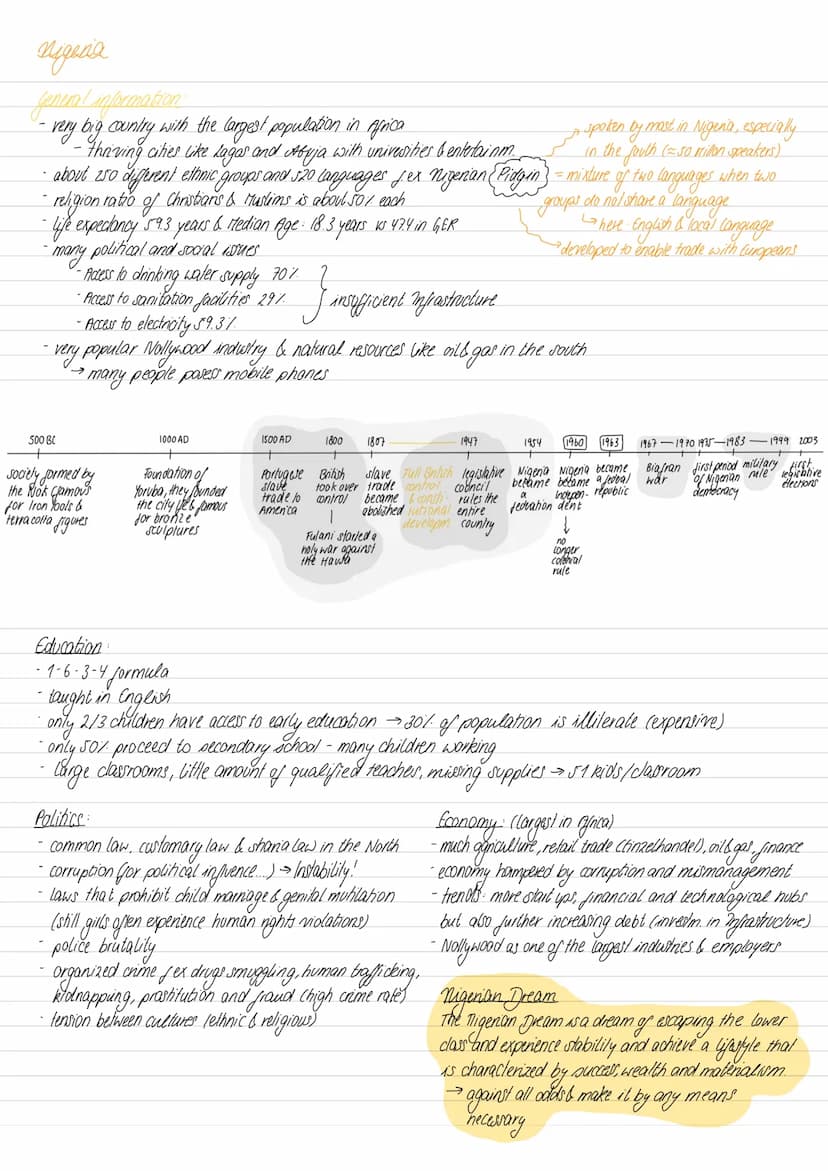 Nigeria
General information:
- very big country with the largest population in Africa
- thriving cities like Lagos and Abuja with universities & entertainm.
- about 250 different ethnic groups and 520 languages f.ex Nigerian Pidgin
- religion ratio of Christians & Muslims is about 50% each
- life expectancy 59.3 years & Median Age: 18.3 years vs 47.4 in GER
- many political and social issues
- Access to drinking water supply 70%
- Access to sanitation facilities 29%
- Access to electricity 59.3%
insufficient Infrastructure
- very popular Nollywood industry & natural resources like oil & gas in the south
→ many people posess mobile phones
spoken by most in Nigeria, especially
in the South (≈ 50 million speakers)
= mixture of two languages when two
groups do not share a language
↳ here English & local language
developed to enable trade with Europeans
500 BC
society formed by
the Nok famous
for Iron tools &
terracotta figures
1000 AD
Foundation of
Yoruba, they founded
the city Ife & famous
for bronze
sculptures
1500 AD
Portugese
slave
trade to
America
1800
British
took over
control
Fulani started a
holy war against
the Hausa
1807
slave
trade
became
abolished
Full British
control
& consti-
tutional
developm.
1947
legislative
council
rules the
entire
country
1954
Nigeria
became
a
federation
1960
Nigeria
became
indepen-
dent
↓
no
longer
colonial
rule
1963
became
a federal
republic
1967 — 1970
Biafran
war
1975 — 1983
first period
of Nigerian
democracy
— 1999
military
rule
2003
first
legislative
elections
Education:
- 1-6-3-4 formula
- taught in English
- only 2/3 children have access to early education → 30% of population is illiterate (expensive)
- only 50% proceed to secondary school - many children working
- large classrooms, little amount of qualified teaches, missing supplies → 51 kids/classroom
Politics:
- common law, customary law & sharia law in the North
- corruption (for political influence...) → Instability!
- laws that prohibit child marriage & genital mutilation
(still girls often experience human rights violations)
- police brutality
- organized crime f.ex drugs smuggling, human trafficking,
kidnapping, prostitution and fraud (high crime rate)
- tension between cultures (ethnic & religious)
Economy: (largest in Africa)
- much agriculture, retail trade (Einzelhandel), oil & gas, finance
- economy hampered by corruption and mismanagement
- trends: more start ups, financial and technological hubs
but also further increasing debt (investm. in Infrastructure)
- Nollywood as one of the largest industries & employers
Nigerian Dream
The Nigerian Dream is a dream of escaping the lower
class and experience stability and achieve a lifestyle that
is characterized by success, wealth and materialism.
→ against all odds & make it by any means
necessary